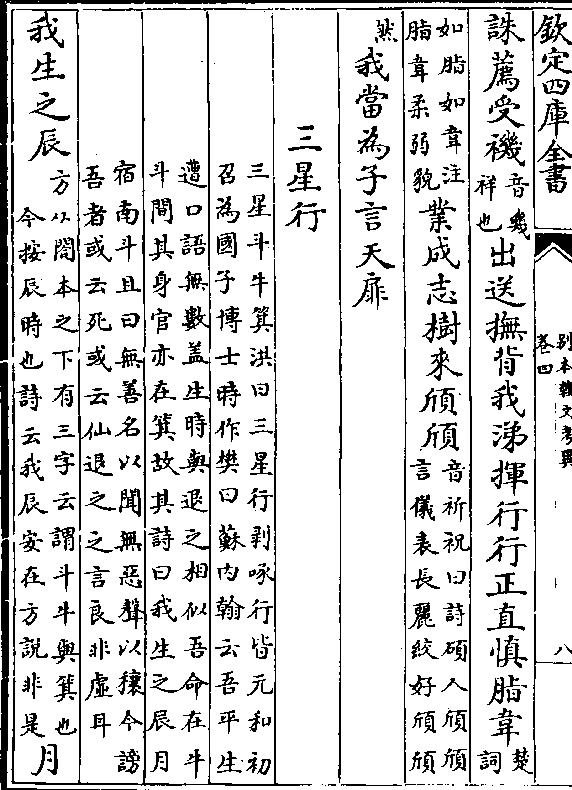 欽定四庫全書
别本韓文考異
卷四
八
誅薦受禨音幾祥也出送撫背我涕揮行行正直慎脂韋楚詞
如脂如韋注脂韋柔弱貌業成志樹來頎頎音祈祝曰詩碩人頎頎言儀表長麗絞好頎頎
然我當為子言天扉
三星行
三星斗牛箕洪曰三星行剥啄行皆元和初
召為國子博士時作樊曰蘇内翰云吾平生
遭口語無數盖生時與退之相似吾命在牛
斗間其身宫亦在箕故其詩曰我生之辰月
宿南斗且曰無善名以聞無惡聲以攘今謗
吾者或云死或云仙退之之言良非虚耳
我生之辰方從閣本之下有三字云謂斗牛與箕也今按辰時也詩云我辰安在方說非是月